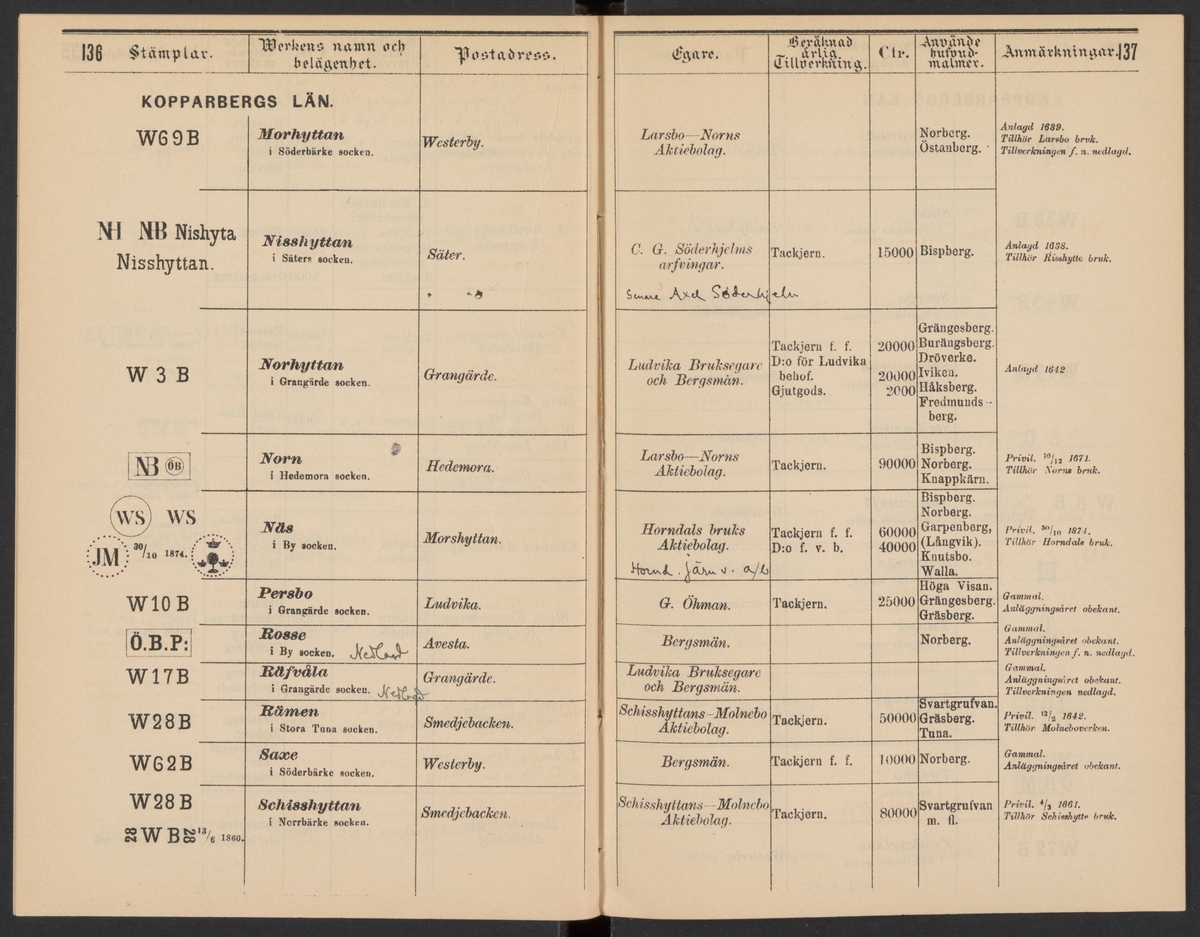 136 Stämplar. Werkens namn och belägenhet. Postadress. Egare. Beräknad årlig Tillverkning. Ctr. Använde hufvudmalmer. Anmärkningar. 137
KOPPARBERGS LÄN.
W69B Morhyttan Westerby. Larsbo—Norns Norberg. Anlagd 1639.
i Söderbärke socken. Aktiebolag. Östanberg. Tillhör Larsbo bruk.
Tillverkningen f. n. nedlagd.
NH NB Nishyta Nisshyttan Säter. C. G. Söderhjelms Tackjern. 15000 Bispberg. Anlagd 1638.
Nisshyttan. i Säters socken. arfvingar. Tillhör Nisshytte bruk.
Senare Axel Söderhjelm
W 3 B Norhyttan Grangärde. Ludvika Bruksegare Tackjern f. f. 20000 Grängesberg. Anlagd 1642
i Grangärde socken. och Bergsmän. D:o för Ludvika Burängsberg.
behof. 20000 Dröverke.
Gjutgods. 2000 Iviken.
Håksberg.
Fredmunds-
berg.
NB ÖB Norn Hedemora. Larsbo—Norns Tackjern. 90000 Bispberg. Privil. 10/12 1671.
i Hedemora socken. Aktiebolag. Norberg. Tillhör Norns bruk.
Knappkärn.
WS WS Näs Morshyttan. Horndals bruks Tackjern f. f. 60000 Bispberg. Privil. 30/10 1874.
JM 30/10 1874. i By socken. Aktiebolag. D:o f. v. b. 40000 Norberg. Tillhör Horndals bruk.
Hornd. Järnv. a/b Garpenberg,
(Långvik).
Knutsbo.
Walla.
W10B Persbo Ludvika. G. Öhman. Tackjern. 25000 Höga Visan. Gammal.
i Grangärde socken. Grängesberg. Anläggningsåret obekant.
Gräsberg.
Ö.B.P: Rosse Avesta. Bergsmän. Norberg. Gammal.
i By socken. Nedlagd Anläggningsåret obekant.
Tillverkningen f. n. nedlagd.
W17B Räfvåla Grangärde. Ludvika Bruksegare Gammal.
i Grangärde socken. Nedlagd och Bergsmän. Anläggningsåret obekant.
Tillverkningen nedlagd.
W28B Rämen Smedjebacken. Schisshyttans—Molnebo Tackjern. 50000 Svartgrufvan. Privil. 12/2 1642.
i Stora Tuna socken. Aktiebolag. Gräsberg. Tillhör Molneboverken.
Tuna.
W62B Saxe Westerby. Bergsmän. Tackjern f. f. 10000 Norberg. Gammal.
i Söderbärke socken. Anläggningsåret obekant.
W28B Schisshyttan Smedjebacken. Schisshyttans—Molnebo Tackjern. 80000 Svartgrufvan Privil. 4/3 1661.
28 W B 28 13/6 1860. i Norrbärke socken. Aktiebolag. m. fl. Tillhör Schisshytte bruk.